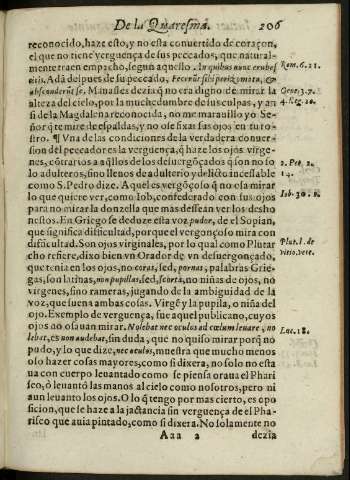 De la Quaresma. 206
reconocido, haze esto, y no esta conuertido de coraçon,
el que no tiene verguença de sus peccados, que natural-
mente traen empacho, segun aquello. In quibus nunc erubes
citis. Adã despues de su peccado, Fecerũt sibi perizomata, &
absconderũt se. Manasses dezia q̃ no era digno de mirar la
alteza del cielo, por la muchedumbre de sus culpas, y an
si de la Magdalena reconocida, no me marauillo yo Se-
ñor q̃ te mire de espaldas, y no ose fixar los ojos en tu ro-
stro. ¶ Vna de las condiciones de la verdadera conuer-
sion del peccador es la verguença, q̃ haze los ojos virge-
nes, cõtrarios a aq̃llos de los desuergõçados q̃ son no so-
lo adulteros, sino llenos de adulterio y delicto incessable
como S. Pedro dize. Aquel es vergõçoso q̃ no osa mirar
lo que quiere ver, como Iob, confederado con sus ojos
para no mirar la donzella que mas dessean ver los desho
nestos. En Griego se deduze esta voz, pudor, de el Sopian,
que significa difficultad, porque el vergonçoso mira con
difficultad. Son ojos virginales, por lo qual como Plutar
cho refiere, dixo bien vn Orador de vn desuergonçado,
que tenia en los ojos, no coras, sed, pornas, palabras Grie-
gas, son latinas, non pupillas, sed, scorta, no niñas de ojos, no
virgenes, sino rameras, jugando de la ambiguidad de la
voz, que suena ambas cosas. Virgẽ y la pupila, o niña del
ojo. Exemplo de verguença, fue aquel publicano, cuyos
ojos no osauan mirar. Nolebat nec oculos ad cœlum leuare, no
lebat, es non audebat, sin duda, que no quiso mirar porq̃ no
pudo, y lo que dize, nec oculos, muestra que mucho menos
oso hazer cosas mayores, como si dixera, no solo no esta
ua con cuerpo leuantado como se piensa oraua el Phari
seo, ò leuantó las manos al cielo como nosotros, pero ni
aun leuanto los ojos. O lo q̃ tengo por mas cierto, es opo
sicion, que se haze a la jactancia sin verguença de el Pha-
riseo que auia pintado, como si dixera. No solamente no
Aaa 2 dezia
Rom. 6. 21.
Gene. 3. 7.
4. Reg. 20.
2. Pet. 2.
14.
Iob. 30.
Plut. l. de
vitio. vere.
Luc. 18.